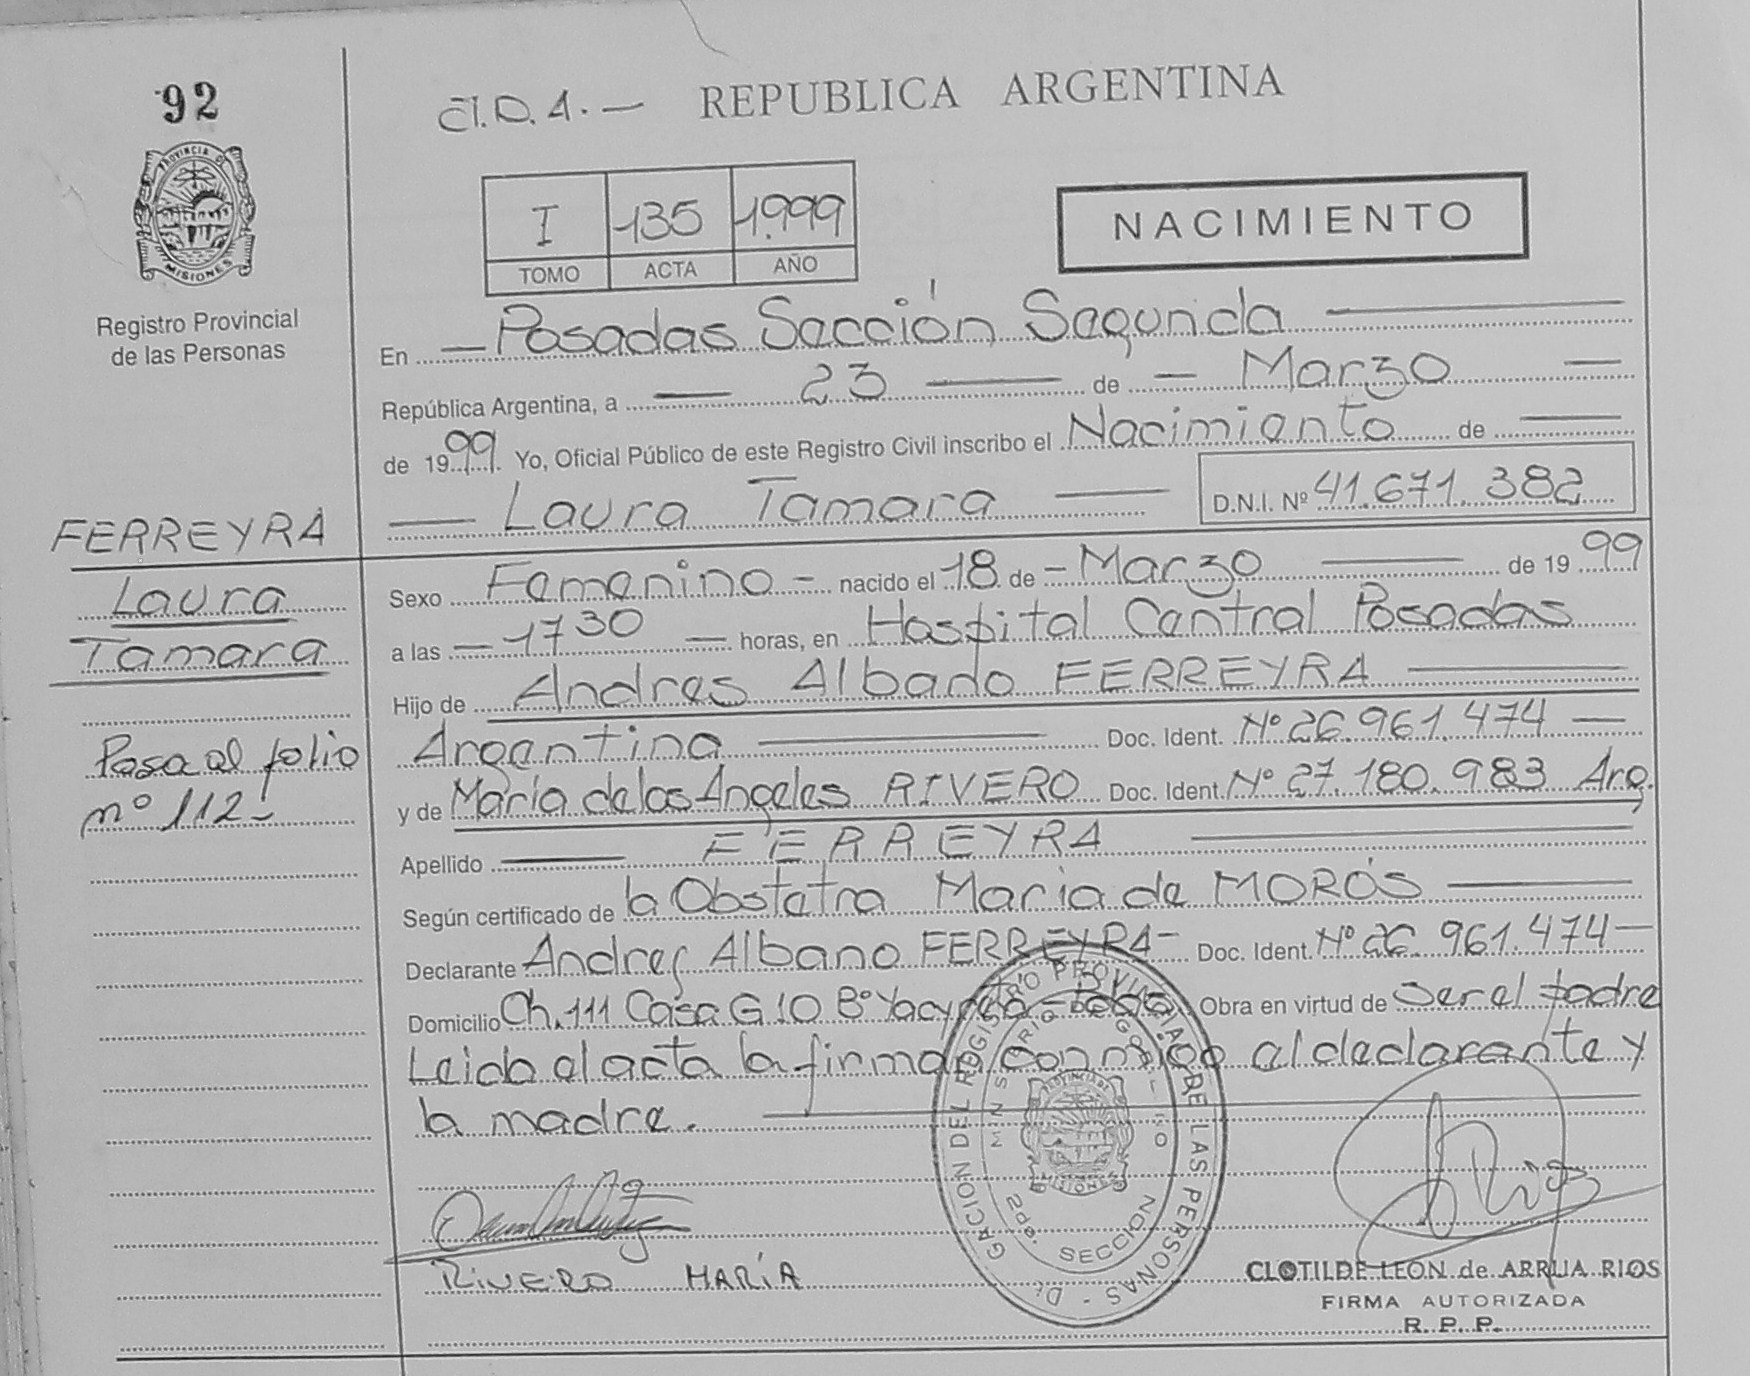 92
REPUBLICA ARGENTINA
PROVINCIA DE
MISIONES
Registro Provincial
de las Personas
I 135 1.999
TOMO ACTA AÑO
NACIMIENTO
En Posadas Sección Segunda
República Argentina, a 23 de Marzo
de 1999. Yo, Oficial Público de este Registro Civil inscribo el Nacimiento de
Laura Tamara D.N.I. Nº 41.671.382
FERREYRA
Laura
Tamara
Pasa al folio
nº 112
Sexo Femenino nacido el 18 de Marzo de 1999
a las 17 30 horas, en Hospital Central Posadas
Hijo de Andres Albano FERREYRA
Argentina Doc. Ident. Nº 26.961.474
y de María de los Angeles RIVERO Doc. Ident. Nº 27.180.983 Arg.
Apellido FERREYRA
Según certificado de la Obstetra Maria de MORÓS
Declarante Andres Albano FERREYRA Doc. Ident. Nº 26.961.474
Domicilio Ch. 111 Casa G 10 Bº Obra en virtud de ser el padre
Leido el acta la firman conmigo el declarante y
la madre.
RIVERO MARÍA
DEL REGISTRO PROVINCIAL DE LAS PERSONAS
SECCION
MISIONES
Rios
CLOTILDE LEON de ARRUA RIOS
FIRMA AUTORIZADA
R. P. P.